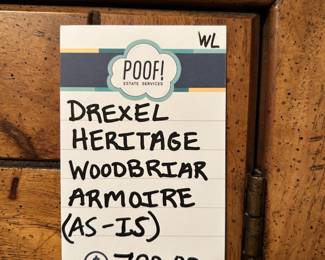 WL
POOF!
ESTATE SERVICES
DREXEL
HERITAGE
WOODBRIAR
ARMOIRE
(AS-IS)